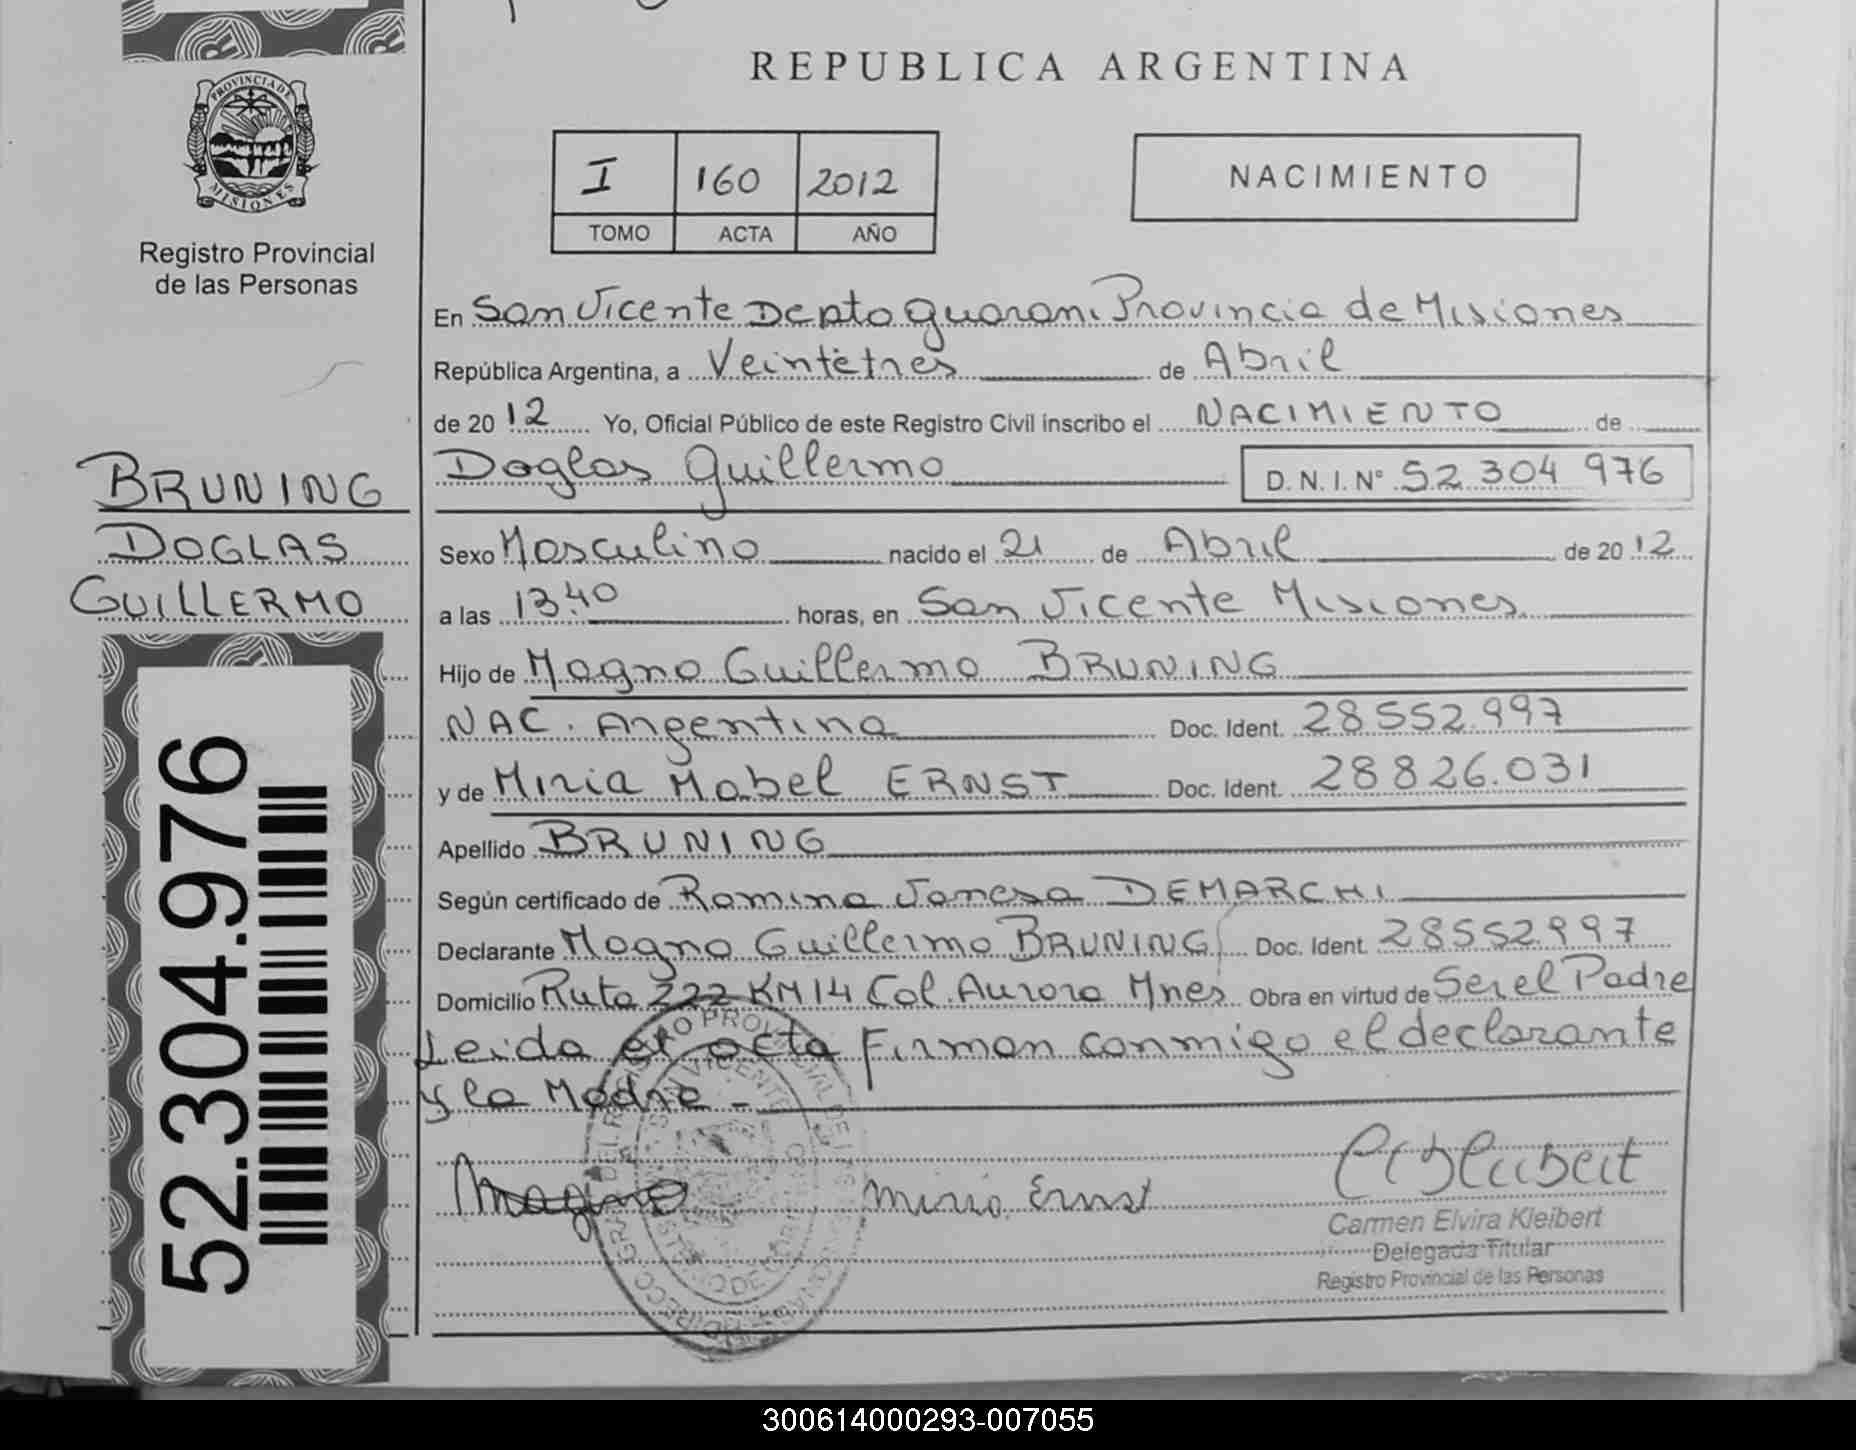 REPUBLICA ARGENTINA
PROVINCIA DE
MISIONES
Registro Provincial
de las Personas
I 160 2012
TOMO ACTA AÑO
NACIMIENTO
En San Vicente Depto Guarani Provincia de Misiones
República Argentina, a Veintetres de Abril
de 2012 Yo, Oficial Público de este Registro Civil inscribo el NACIMIENTO de
Doglas Guillermo D.N.I.N° 52 304 976
BRUNING
DOGLAS
GUILLERMO
Sexo Masculino nacido el 21 de Abril de 2012
a las 13:40 horas, en San Vicente Misiones
Hijo de Magno Guillermo BRUNING
NAC. Argentina Doc. Ident. 28552.997
y de Miria Mabel ERNST Doc. Ident. 28826.031
Apellido BRUNING
Según certificado de Romina Vanesa DEMARCHI
Declarante Magno Guillermo BRUNING Doc. Ident. 28552997
Domicilio Ruta 222 KM14 Col. Aurora Mnes Obra en virtud de Ser el Padre
Leida el acta Firman conmigo el declarante
y la Madre -
52.304.976
Magno
Miria Ernst
Carmen Elvira Kleibert
Delegada Titular
Registro Provincial de las Personas
300614000293-007055